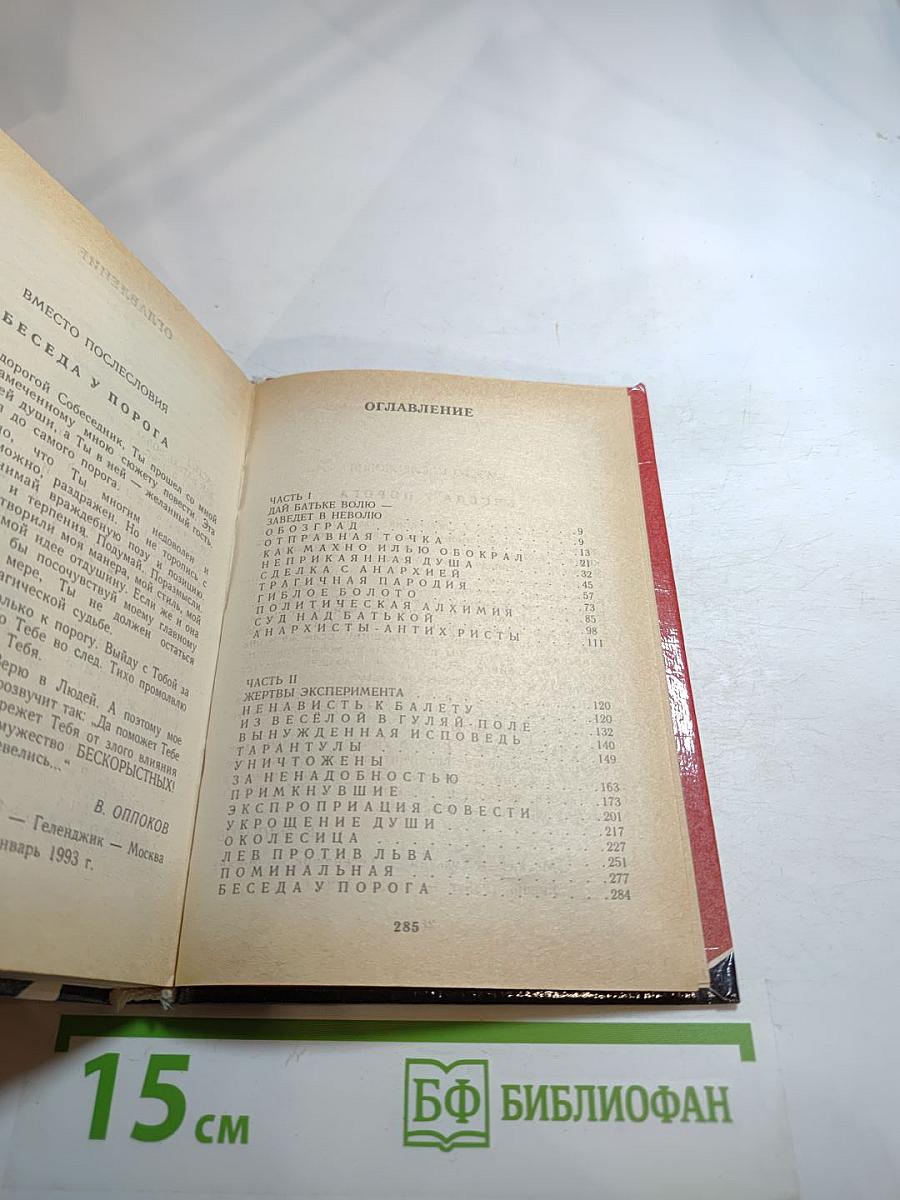 ВМЕСТО ПОСЛЕСЛОВИЯ
БЕСЕДА У ПОРОГА
дорогой Собеседник, Ты прошел со мной
амеченному мною сюжету повести Эта
ей души, а Ты в ней — желанный гость
до самого порога.
что Ты многим недоволен и
раздражен. Но не торопись с
нимай враждебную позу и Позицию
и терпения. Подумай. Поразмысли.
творили моя манера, мой стиль, мой
мой идее отдушину. Если же и она
бы посочувствуй моему главному
мере, Ты не должен остаться
агической судьбе.
олько к порогу. Выйду с Тобой за
о Тебе во след. Тихо промолвлю
Тебя.
Верю в Людей. А поэтому мое
розвучит так: „Да поможет Тебе
режет Тебя от злого влияния
мужество БЕСКОРЫСТНЫХ!
евелись..."
В. ОППОКОВ
— Геленджик — Москва
нварь 1993 г.
ОГЛАВЛЕНИЕ
ЧАСТЬ I
ДАЙ БАТЬКЕ ВОЛЮ —
ЗАВЕДЕТ В НЕВОЛЮ . . . 9
ОБОЗГРАД . . . 9
ОТПРАВНАЯ ТОЧКА . . . 13
КАК МАХНО ИЛЬЮ ОБОКРАЛ . . . 21
НЕПРИКАЯННАЯ ДУША . . . 32
СДЕЛКА С АНАРХИЕЙ . . . 45
ТРАГИЧНАЯ ПАРОДИЯ . . . 57
ГИБЛОЕ БОЛОТО . . . 73
ПОЛИТИЧЕСКАЯ АЛХИМИЯ . . . 85
СУД НАД БАТЬКОЙ . . . 98
АНАРХИСТЫ-АНТИХРИСТЫ . . . 111
ЧАСТЬ II
ЖЕРТВЫ ЭКСПЕРИМЕНТА . . . 120
НЕНАВИСТЬ К БАЛЕТУ . . . 120
ИЗ ВЕСЁЛОЙ В ГУЛЯЙ-ПОЛЕ . . . 132
ВЫНУЖДЕННАЯ ИСПОВЕДЬ . . . 140
ТАРАНТУЛЫ . . . 149
УНИЧТОЖЕНЫ
ЗА НЕНАДОБНОСТЬЮ . . . 163
ПРИМКНУВШИЕ . . . 173
ЭКСПРОПРИАЦИЯ СОВЕСТИ . . . 201
УКРОЩЕНИЕ ДУШИ . . . 217
ОКОЛЕСИЦА . . . 227
ЛЕВ ПРОТИВ ЛЬВА . . . 251
ПОМИНАЛЬНАЯ . . . 277
БЕСЕДА У ПОРОГА . . . 284
285
15 см
БФ БИБЛИОФАН